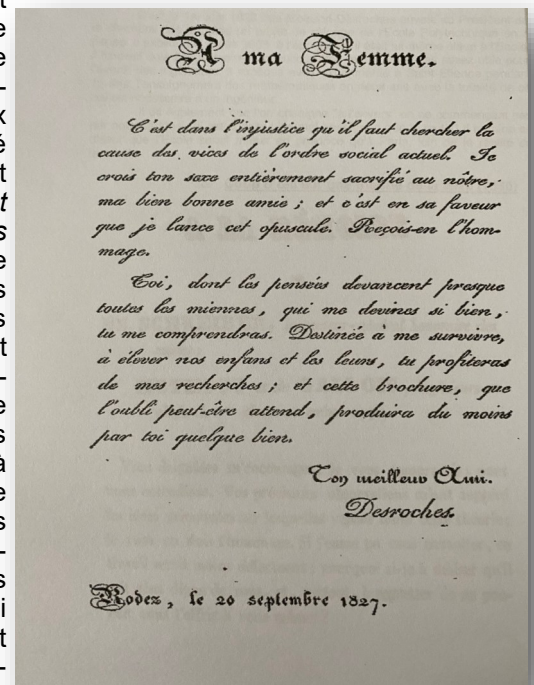 A ma Femme.
C'est dans l'injustice qu'il faut chercher la
cause des vices de l'ordre social actuel. Je
crois ton sexe entièrement sacrifié au nôtre,
ma bien bonne amie ; et c'est en sa faveur
que je lance cet opuscule. Reçois-en l'hom-
mage.
Toi, dont les pensées devancent presque
toutes les miennes, qui me devines si bien,
tu me comprendras. Destinée à me survivre,
à élever nos enfans et les leurs, tu profiteras
de mes recherches ; et cette brochure, que
l'oubli peut-être attend, produira du moins
par toi quelque bien.
Ton meilleur Ami.
Desroches.
Rodez, le 20 septembre 1827.